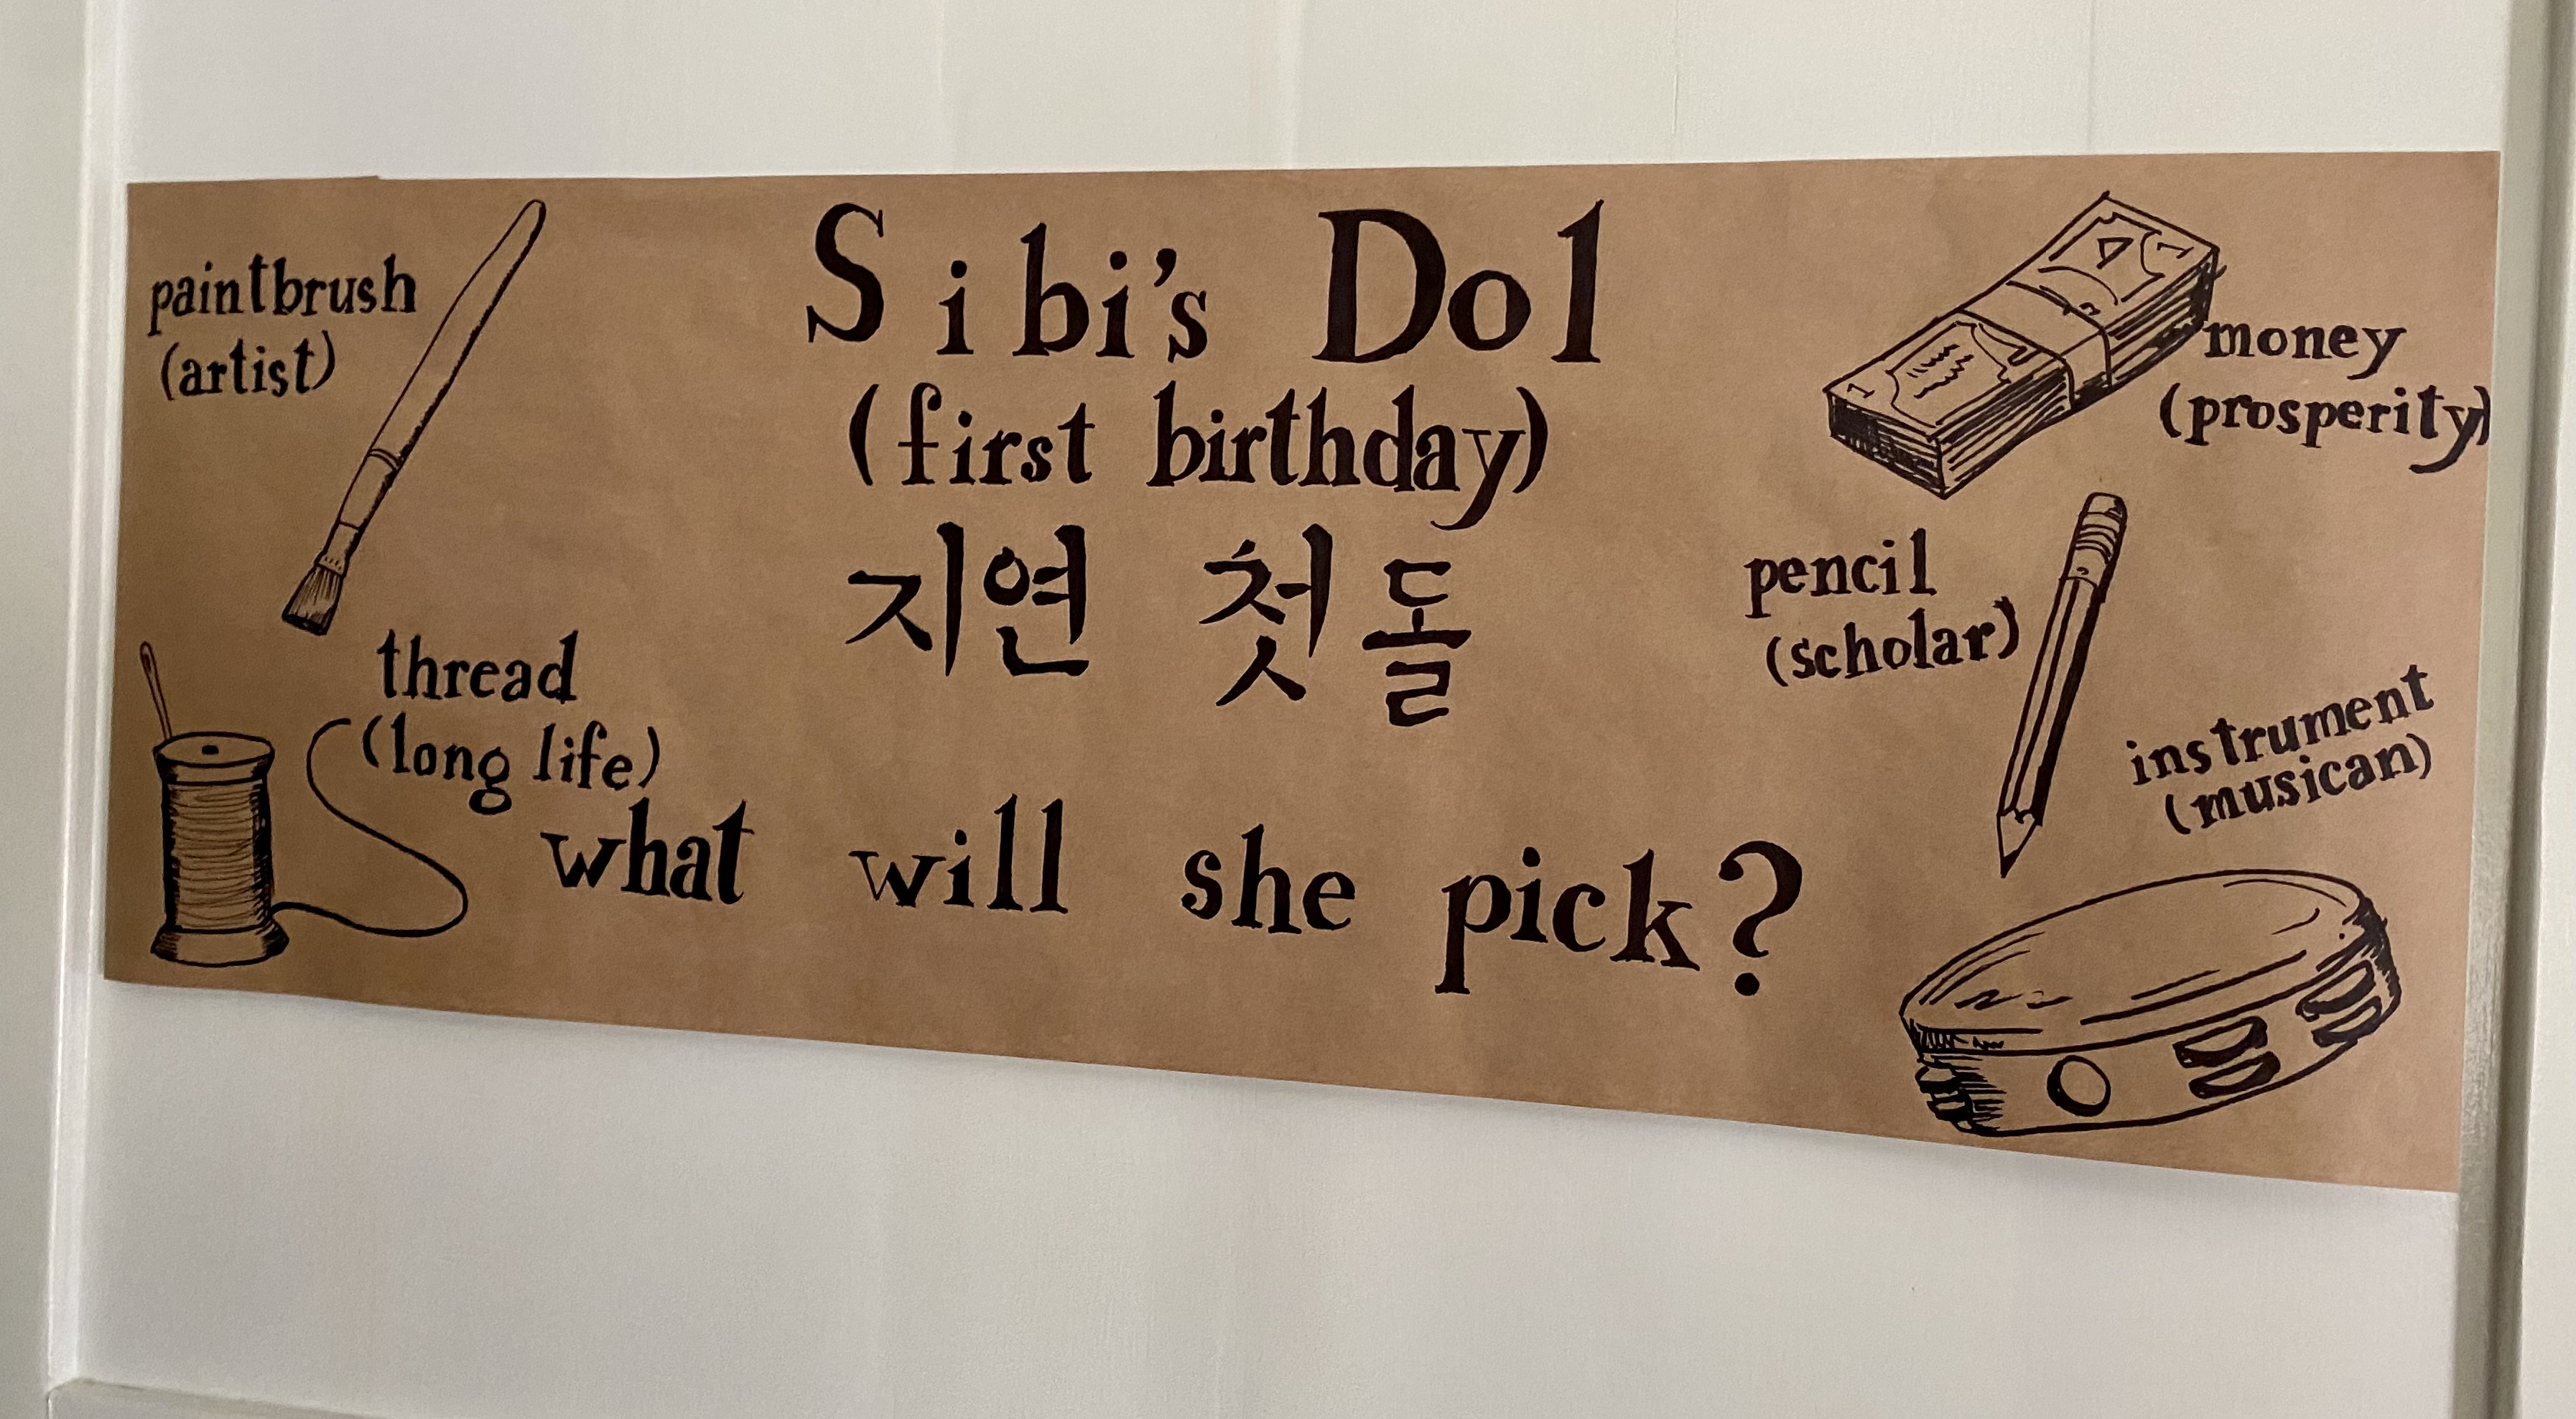 Sibi's Dol
(first birthday)
지연 첫돌
what will she pick?
paintbrush
(artist)
thread
(long life)
money
(prosperity)
pencil
(scholar)
instrument
(musican)